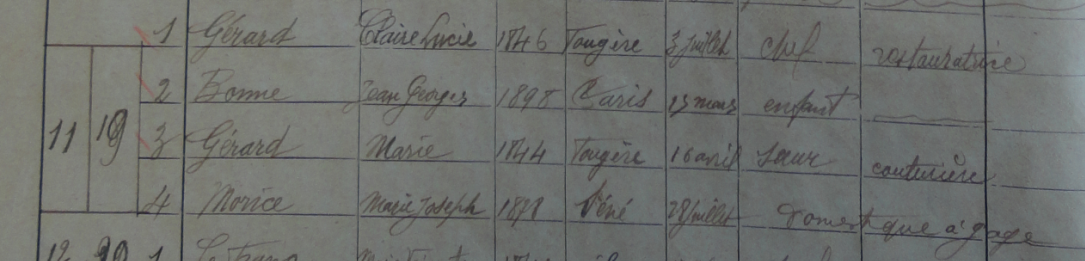 1 Gérard Claire Lucie 1846 Fougère 3 juillet chef restauratrice
2 Bonne Jean Georges 1898 Paris 15 mars enfant
11 19 3 Gérard Marie 1844 Fougère 16 avril sœur couturière
4 Morice Marie Joseph 1878 28 juillet domestique à gage
12 20 1